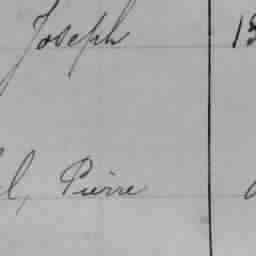 Joseph
l, Pierre